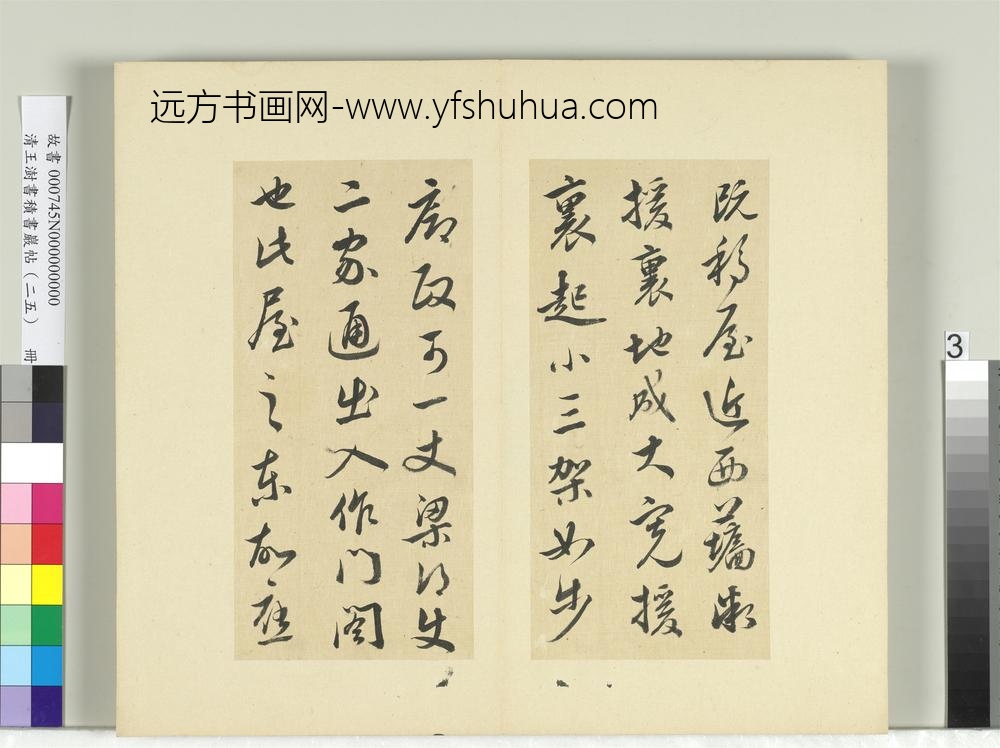 远方书画网-www.yfshuhua.com
既移屋近西
援裏地成大寬援
裏起小三架如步
廊可一丈梁
二家通出入作門閣
也此屋之東應
故書 000745N000000000
清王澍書積書巖帖（二五） 冊
3